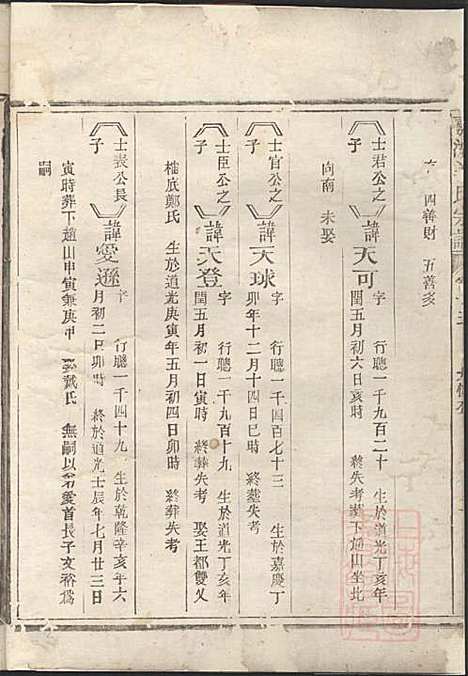 四善財 五善亥
士君公之
子
諱天可
字 行聽一千九百二十 生於道光丁亥年
閏五月初六日亥時 終失考 葬下通山坐北
向南 未娶
士官公之
子
諱天球
字 行聽一千四百七十三 生於嘉慶丁
卯年十二月十四日巳時 終墓失考
士臣公之
子
諱天登
字 行聽一千九百十九 生於道光丁亥年
閏五月初一日寅時 終葬失考 娶王都雙乂
樠底鄭氏 生於道光庚寅年五月初四日卯時 終葬失考
士表公長
子
諱愛遜
字 行聽一千四十九 生於乾隆辛亥年六
月初二日卯時 終於道光壬辰年七月廿三日
寅時葬下通山申寅兼庚甲 娶戴氏 無嗣以弟愛首長子文裕為
嗣